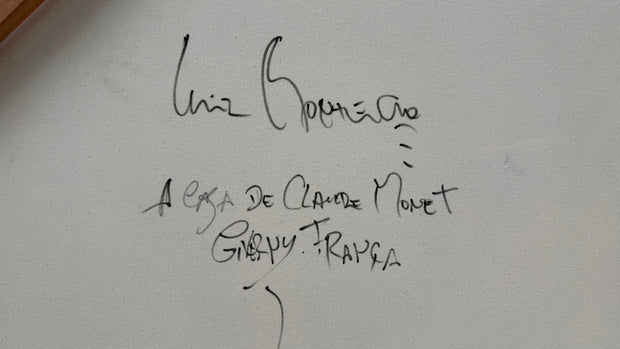 Luiz
A CASA DE CLAUDE MONET
GIVERNY. FRANÇA